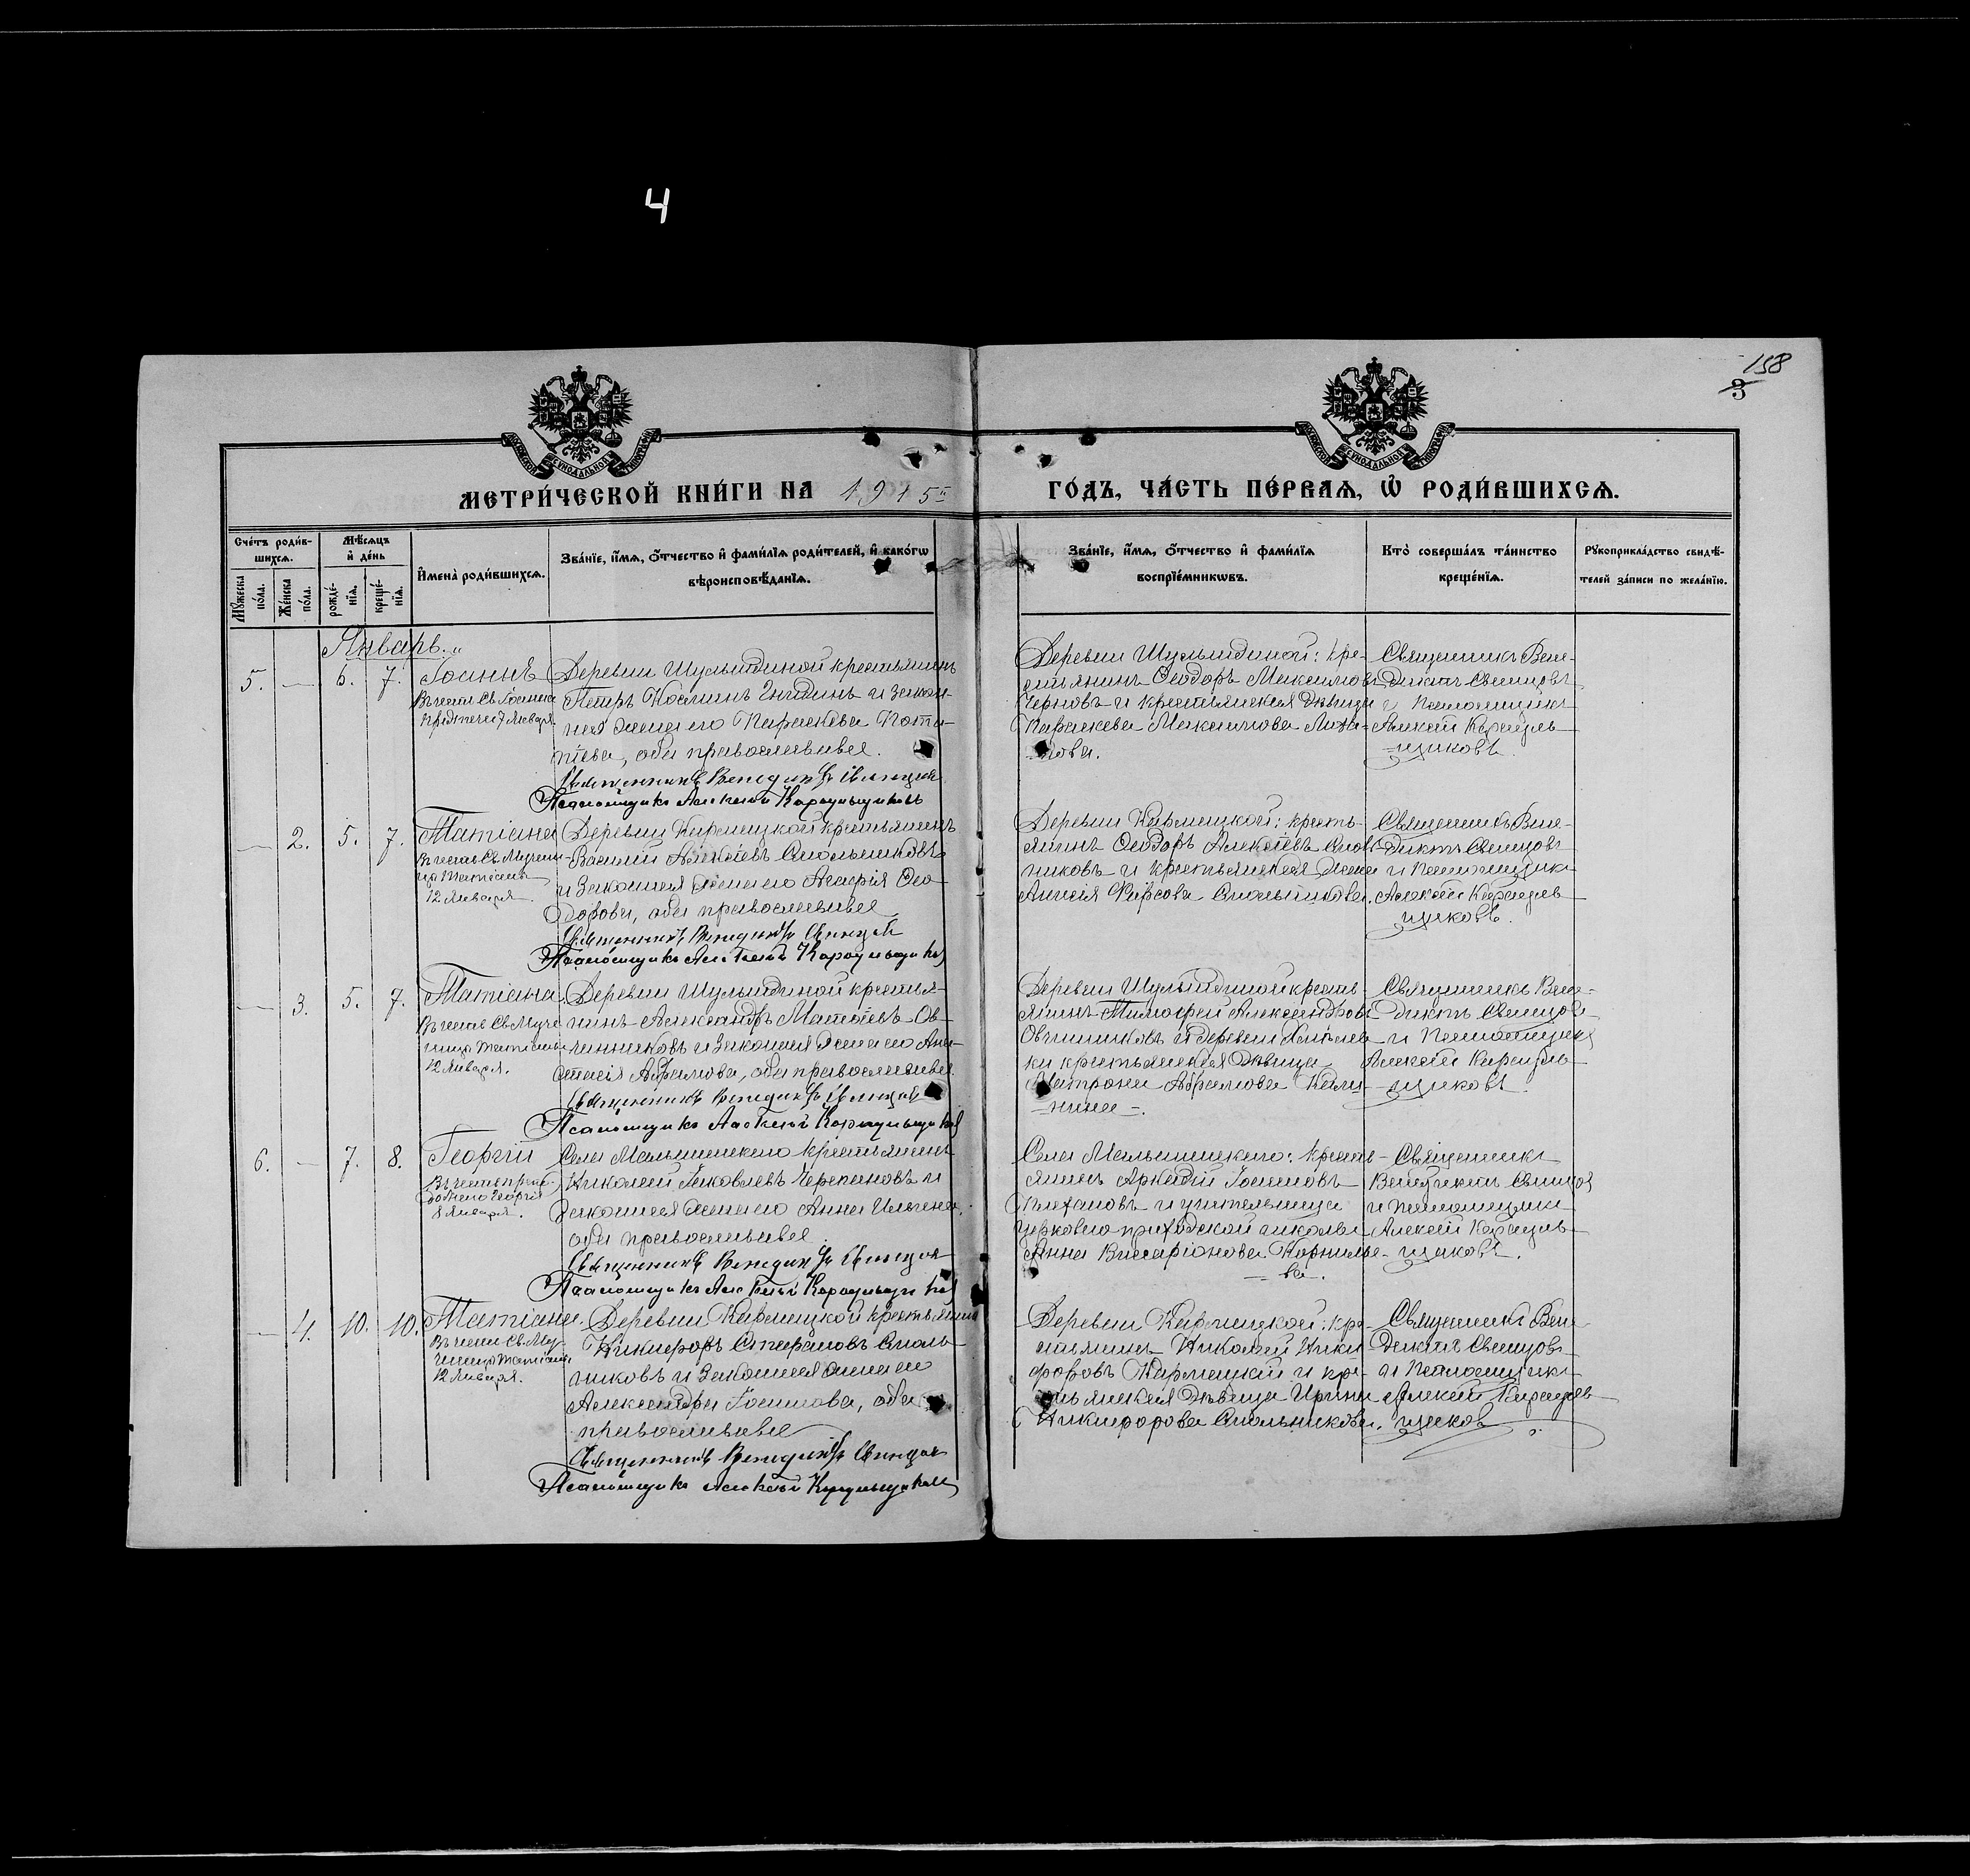 4
158
3
МЕТРИ́ЧЕСКОЙ КНИ́ГИ НА 1915й ГО́ДЪ, ЧА́СТЬ ПЕ́РВАЯ, Ѽ РОДИ́ВШИХСЯ.
Сче́тъ роди́в-
шихся.
Мꙋжеска по́ла.
Же́нска по́ла.
Мѣ́сяцъ
и҆ де́нь
рожде́-
нїя.
креще́-
нїя.
И҆мена̀ роди́вшихся.
Зва́нїе, и҆́мя, ѻ҆́тчество и҆ фами́лїя роди́телей, и҆ како́гѡ
вѣроисповѣ́данїя.
Зва́нїе, и҆́мя, ѻ҆́тчество и҆ фами́лїя
воспрїе́мникѡвъ.
Кто̀ соверша́лъ та́инство
креще́нїя.
Рꙋкоприкла́дство свидѣ́-
телей за́писи по жела́нїю.
Январь.
5. — 6. 7.
Іоаннъ
Въ честь Св. Іоанна
Предтечи 7 Января
Деревни Шульгиной крестьянинъ
Петръ и закон-
ная жена его Параскева
, оба православные.
Священникъ Венедиктъ Свинцов
Псаломщикъ Алексѣй Караульщиковъ
Деревни : кре-
стьянинъ Ѳеодоръ Максимовъ
Черновъ и крестьянская дѣвица
Параскева Максимова
Священникъ Вене-
диктъ Свинцовъ
и Псаломщикъ
Алексѣй Карауль-
щиковъ.
— 2. 5. 7.
Татіана
Въ честь Св. Мучени-
цы Татіаны
12 Января.
Деревни Кармацкой крестьянинъ
Василій Алексѣевъ Смольниковъ
и законная жена его Агафія Ѳео-
дорова, оба православные
Священникъ Венедиктъ Свинцов
Псаломщикъ Алексѣй Караульщиков
Деревни Кармацкой: кресть-
янинъ Ѳеодоръ Алексѣевъ Смоль-
никовъ и крестьянская жена
Анисія Фирсова Смольникова.
Священникъ Вене-
диктъ Свинцовъ
и Псаломщикъ
Алексѣй Карауль-
щиковъ.
— 3. 5. 7.
Татіана.
Въ честь Св. Муче-
ницы Татіаны
12 Января.
Деревни крестья-
нинъ Александръ Матвѣевъ Ов-
чинниковъ и законная жена его Ана-
стасія Абрамова, оба православные.
Священникъ Венедиктъ Свинцов
Псаломщикъ Алексѣй Караульщиков
Деревни кресть-
янинъ Тимофей Александровъ
Овчинниковъ и деревни
ки крестьянская дѣвица
Матрона Абрамова Кали-
нина.
Священникъ Вене-
диктъ Свинцов
и Псаломщикъ
Алексѣй Карауль-
щиковъ.
6. — 7. 8.
Георгій
Въ честь препо-
добнаго Георгія
8 Января.
Села Малышенскаго крестьянинъ
Николай Іаковлевъ Черепановъ и
законная жена его Анна Ильина,
оба православные.
Священникъ Венедиктъ Свинцов
Псаломщикъ Алексѣй Караульщиков
Села Малышенскаго: кресть-
янинъ Аркадій Іоанновъ
Плехановъ и учительница
церковно приходской школы
Анна Виссаріонова Корнилье-
ва.
Священникъ
Венедиктъ Свинцов
и псаломщикъ
Алексѣй Карауль-
щиковъ.
— 4. 10. 10.
Татіана.
Въ честь Св. Му-
ченицы Татіаны
12 Января.
Деревни Кармацкой крестьянинъ
Никифоръ Стефановъ Смоль-
никовъ и законная жена его
Александра Іоаннова, оба
православные
Священникъ Венедиктъ Свинцов
Псаломщикъ Алексѣй Караульщиков
Деревни Кармацкой: кре-
стьянинъ Николай Ники-
форовъ Кармацкій и кре-
стьянская дѣвица Ирина
Никифорова Смольникова.
Священникъ Вене-
диктъ Свинцовъ
и Псаломщикъ
Алексѣй Карауль-
щиков